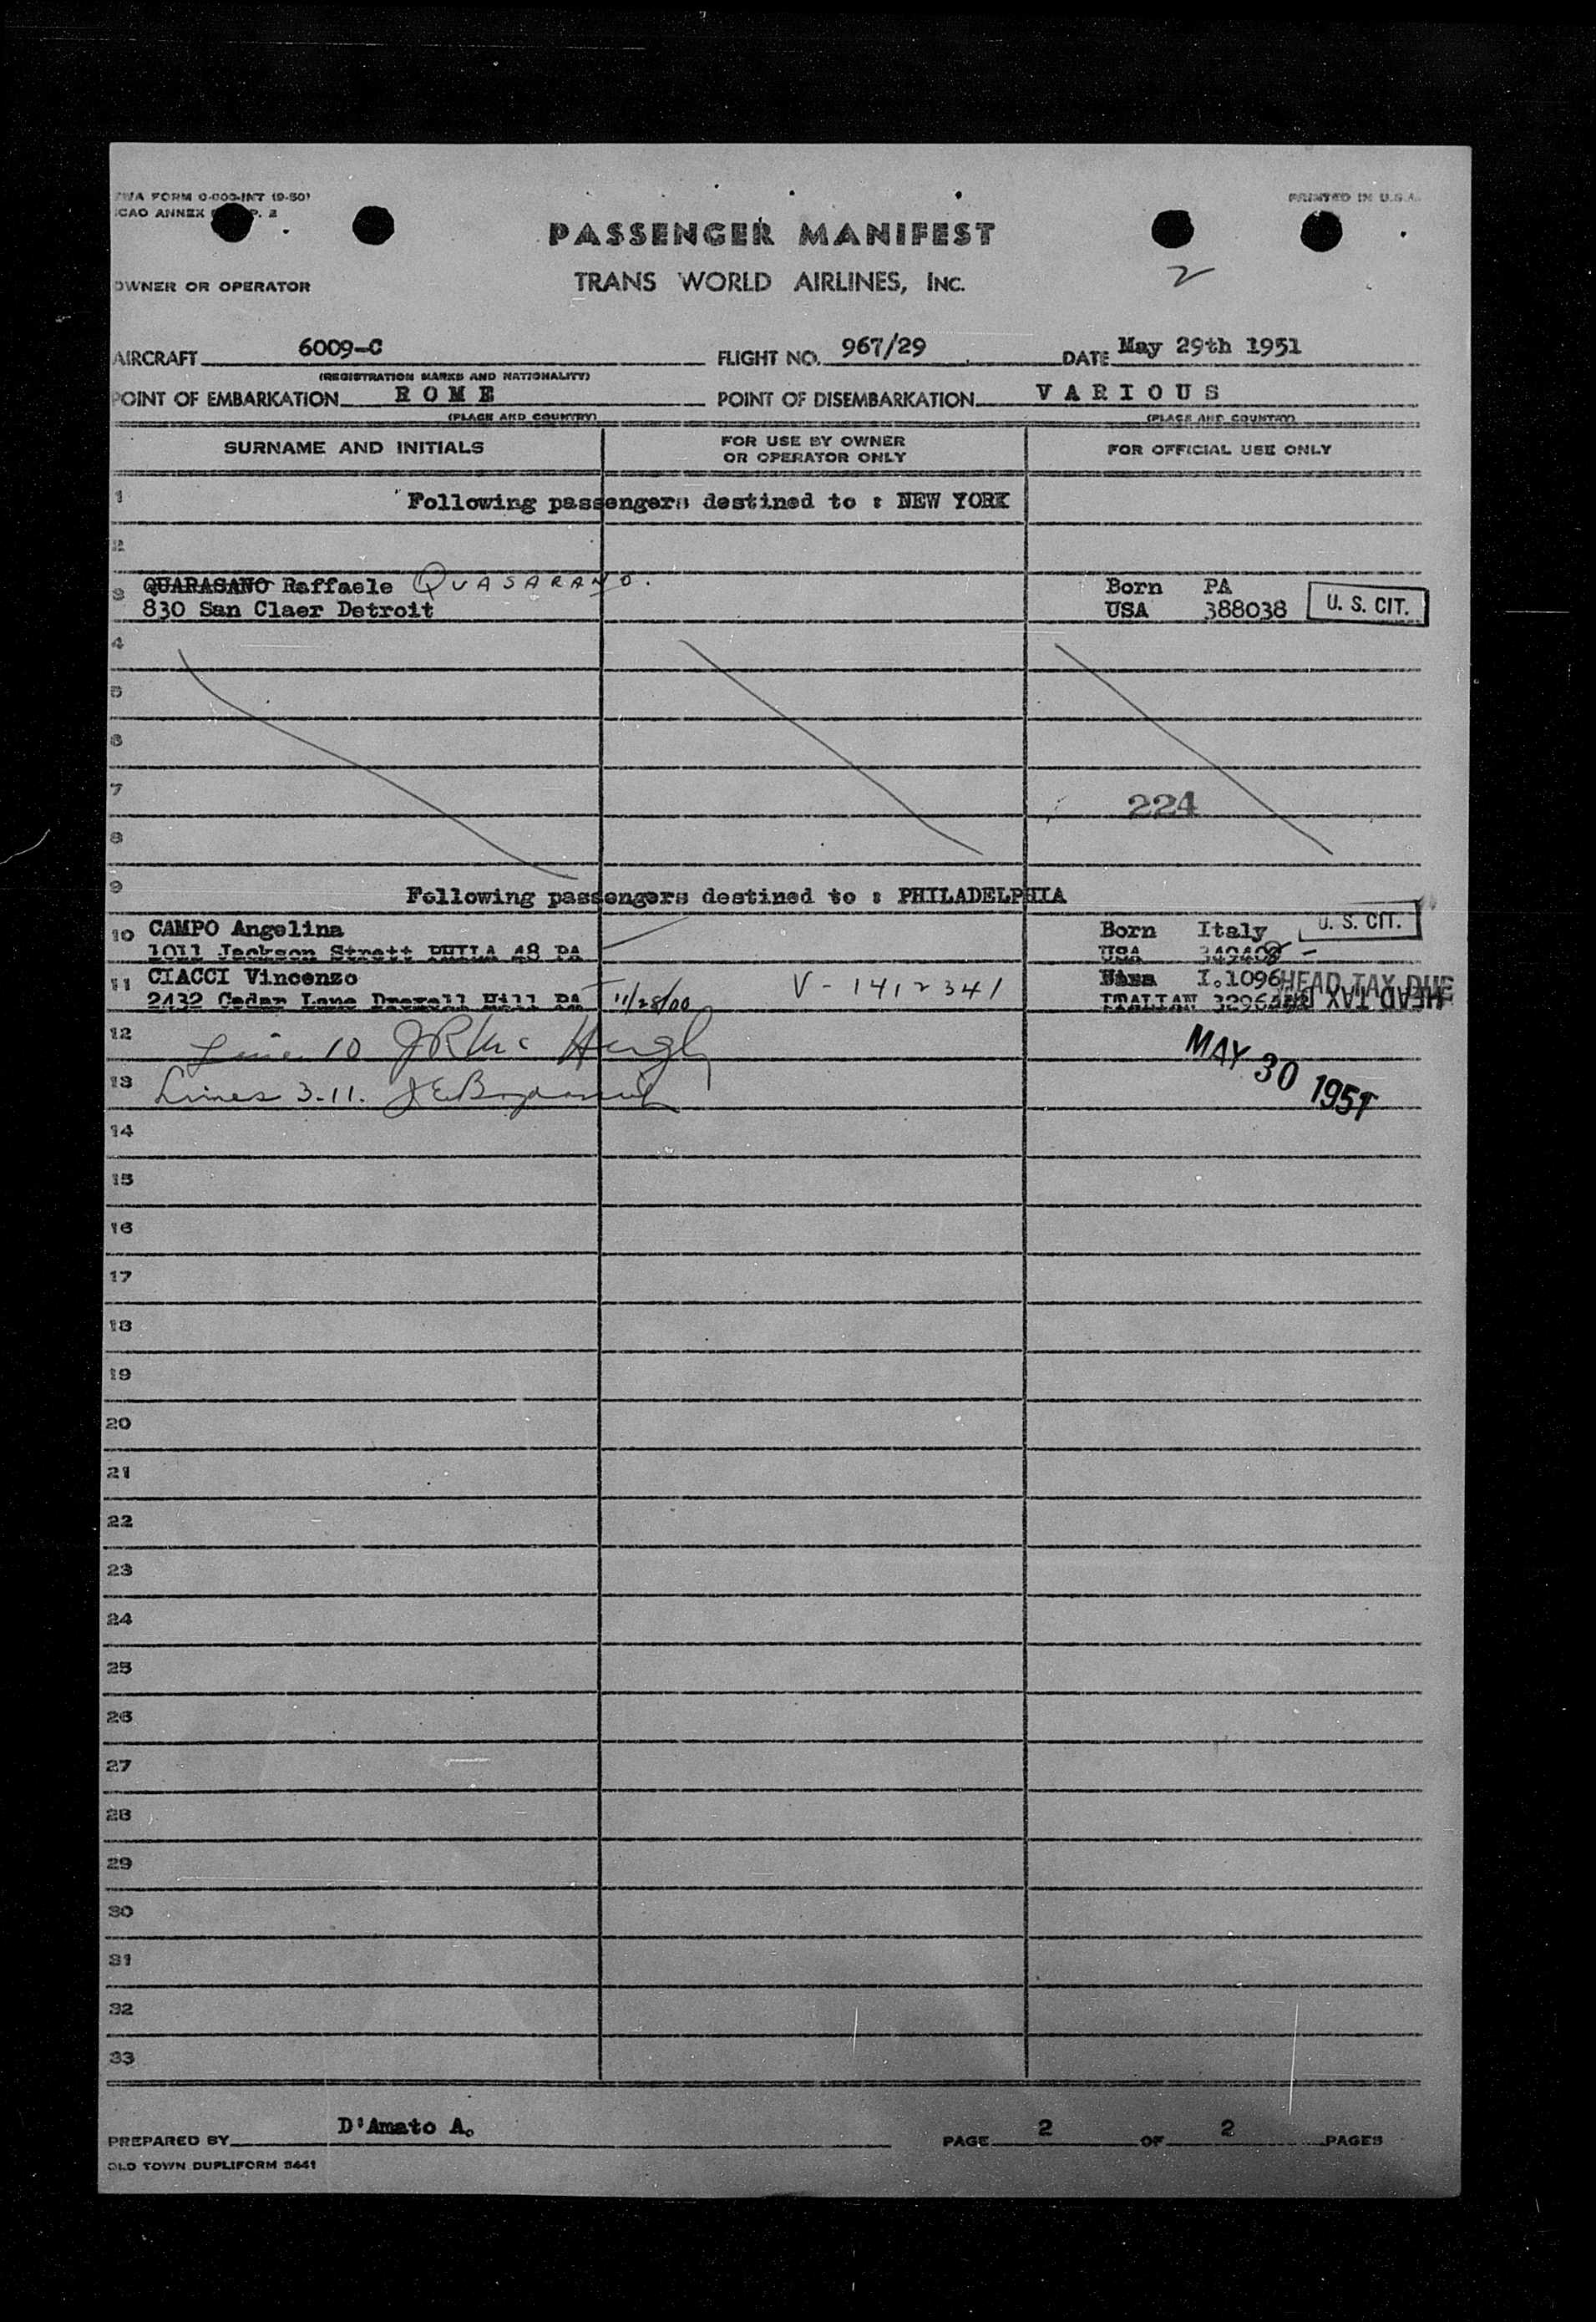 TWA FORM 0-000-INT (9-50) PRINTED IN U.S.A.
ICAO ANNEX P. 2
PASSENGER MANIFEST
2
OWNER OR OPERATOR TRANS WORLD AIRLINES, INC.
AIRCRAFT 6009-C FLIGHT NO. 967/29 DATE May 29th 1951
(REGISTRATION MARKS AND NATIONALITY)
POINT OF EMBARKATION R O M E POINT OF DISEMBARKATION V A R I O U S
(PLACE AND COUNTRY) (PLACE AND COUNTRY)
SURNAME AND INITIALS FOR USE BY OWNER OR OPERATOR ONLY FOR OFFICIAL USE ONLY
1 Following passengers destined to : NEW YORK
2
3 QUARASANO Raffaele QUASARANO. Born PA
830 San Claer Detroit USA 388038 U. S. CIT.
4
5
6
7 224
8
9 Following passengers destined to : PHILADELPHIA
10 CAMPO Angelina Born Italy U. S. CIT.
1011 Jackson Strett PHILA 48 PA USA
11 CIACCI Vincenzo V-1412341 I.1096 HEAD TAX DUE
2432 Cedar Lane Drexell Hill PA 11/28/00 ITALIAN HEAD TAX DUE
12 Line 10 JR Mc Hugh MAY 30 1951
13 Lines 3-11.
14
15
16
17
18
19
20
21
22
23
24
25
26
27
28
29
30
31
32
33
PREPARED BY D'Amato A. PAGE 2 OF 2 PAGES
OLD TOWN DUPLIFORM 8441